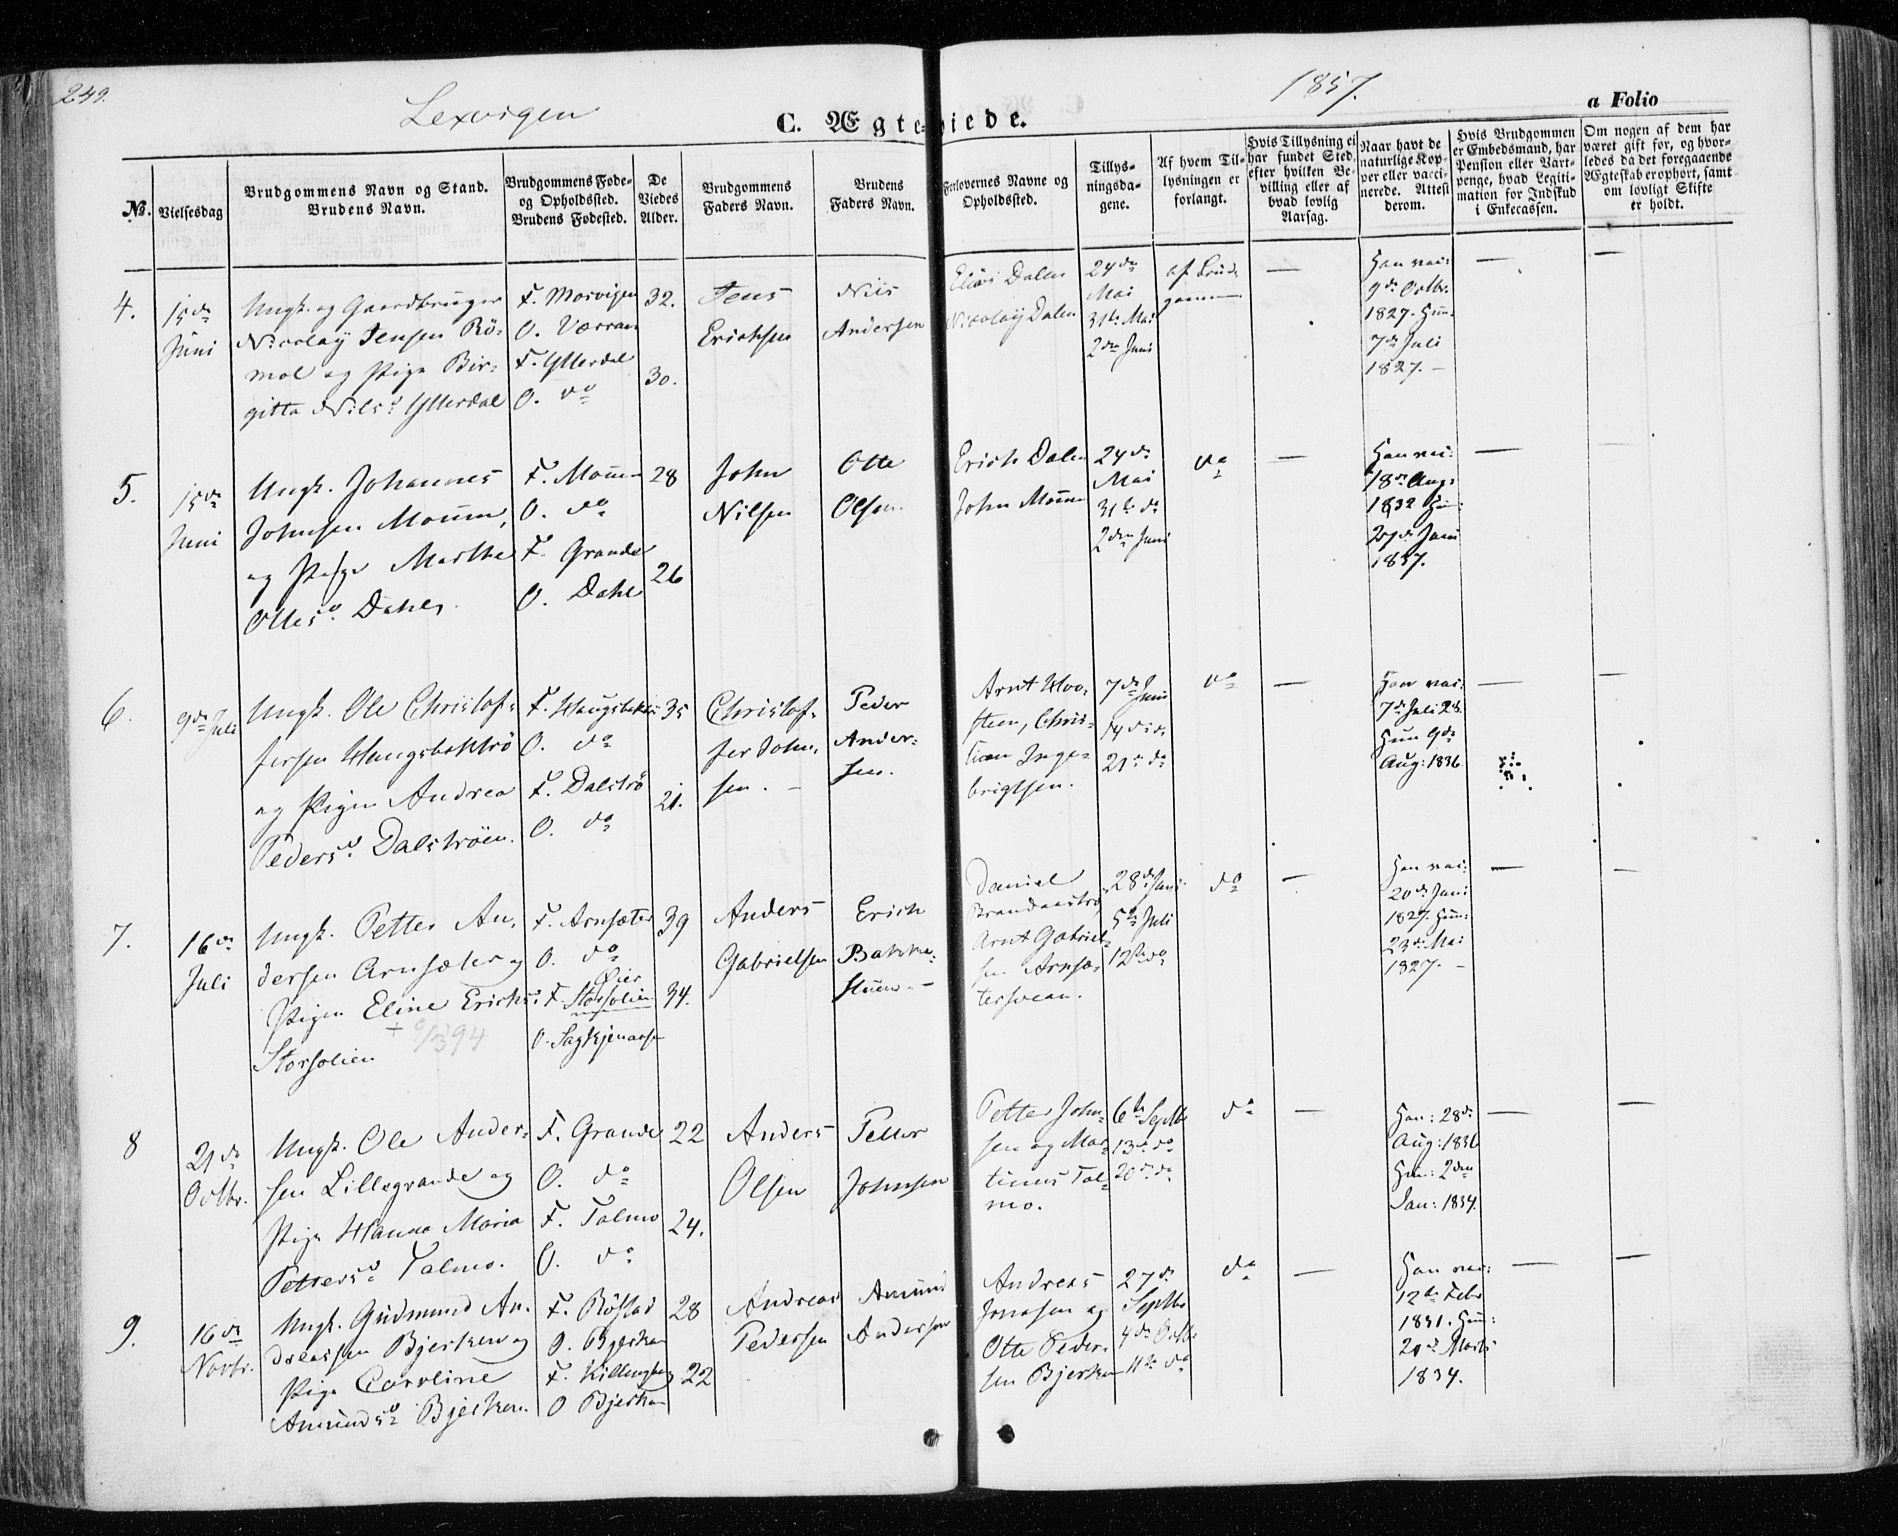 249.
Lexvigen
1857.
C. Ægteviede.
a Folio
No.
Vielsesdag
Brudgommens Navn og Stand.
Brudens Navn.
Brudgommens Føde-
og Opholdssted.
Brudens Fødested.
De
Viedes
Alder.
Brudgommens
Faders Navn.
Brudens
Faders Navn.
Forlovernes Navne og
Opholdssted.
Tillys-
ningsda-
gene.
Af hvem Til-
lysningen er
forlangt.
Hvis Tillysning ei
har fundet Sted,
efter hvilken Be-
villing eller af
hvad lovlig
Aarsag.
Naar havt de
naturlige Kop-
per eller vacci-
nerede. Attest
derom.
Hvis Brudgommen
er Embedsmand, har
Pension eller Vart-
penge, hvad Legiti-
mation for Indskud
i Enkecassen.
Om nogen af dem har
været gift før, og hvor-
ledes da det foregaaende
Ægteskab er ophørt, samt
om lovligt Skifte
er holdt.
4.
15de
Juni
Ungk. og Gaardbruger
Nicolaÿ Jensen Rö-
mol og Pige Bir-
gitta Nilsd. Ytterdal
F. Mosvigen
O. Værran
F. Ytterdal
O. do
32.
30.
Jens
Erichsen
Nils
Andersen
Elias Dalen
Nicolaÿ Dalen
24de
Mai
31te Mai
2den Juni
af Brud-
gommen
—
Han vac:
9de Octbr.
1827. Hun
7de Juli
1827. –
—
—
5.
15de
Juni
Ungk. Johannes
Johnsen Mouum,
og Pige Marthe
Ottesd. Dahle
F. Mouum
O. do
F. Grande
O. Dahle
28
26
John
Nilsen
Otte
Olsen.
Erich Dalen
John Mouum
24de
Mai
31te do
2den Juni
do
—
Han vac:
18de Aug:
1832 Hun:
27de Juni
1837.
—
—
6.
9de Juli
Ungk. Ole Christof-
fersen Haugsbaktrö
og Pigen Andrea
Pedersd. Dalströen.
O. do
F. Dalströ
O. do
35
21.
Christof-
fer John-
sen. –
Peder
Ander-
sen.
Arnt Hoo-
steen, Chris-
tian Inge-
brigtsen.
7de Juni
14de do
21de do
do
—
Han vac:
7de Juli 23.
Hun 9de
Aug: 1836.
—
—
7.
16de
Juli
Ungk. Petter An-
dersen Arnsæter og
Pigen Eline Erichs:
Storsolien
F. Arnsæter
O. do
Øier
F. Storsolien
39
34.
Anders
Gabrielsen
Erich
Daniel
Arnt Gabriel-
sen Arnsæ-
28de Juni
5te Juli
12te do
do
—
Han vac:
20de Juni
1827. Hun:
23de Mai
1827. –
—
—
8
21de
Octbr.
Ungk. Ole Ander-
sen Lillegrande og
Pige Hanna Maria
Pettersd. Talmo.
F. Grande
O. do
F. Talmo
O. do
22
24.
Anders
Olsen
Petter
Johnsen
Petter John-
sen og Mar-
tinus Tal-
mo.
6te Septbr
13de do
20de do
do
—
Han: 28de
Aug: 1836
Hun: 2den
Jan: 1834.
—
—
9.
16de
Novbr.
Ungk. Gudmund An-
dreassen Bjerken og
Pige Caroline
Amundsd. Bjerken.
F. Röstad
O. Bjerkan
F. Killingberg
O Bjerkan
28
22
Andreas
Pedersen
Amund
Andersen
Andreas
Jonasen og
Otte Peder-
sen Bjerkan
27de
Septbr
4de Octbr
11te do
do
—
Han vac:
12te Febr
1831. Hun:
20de Marts
1834.
—
—